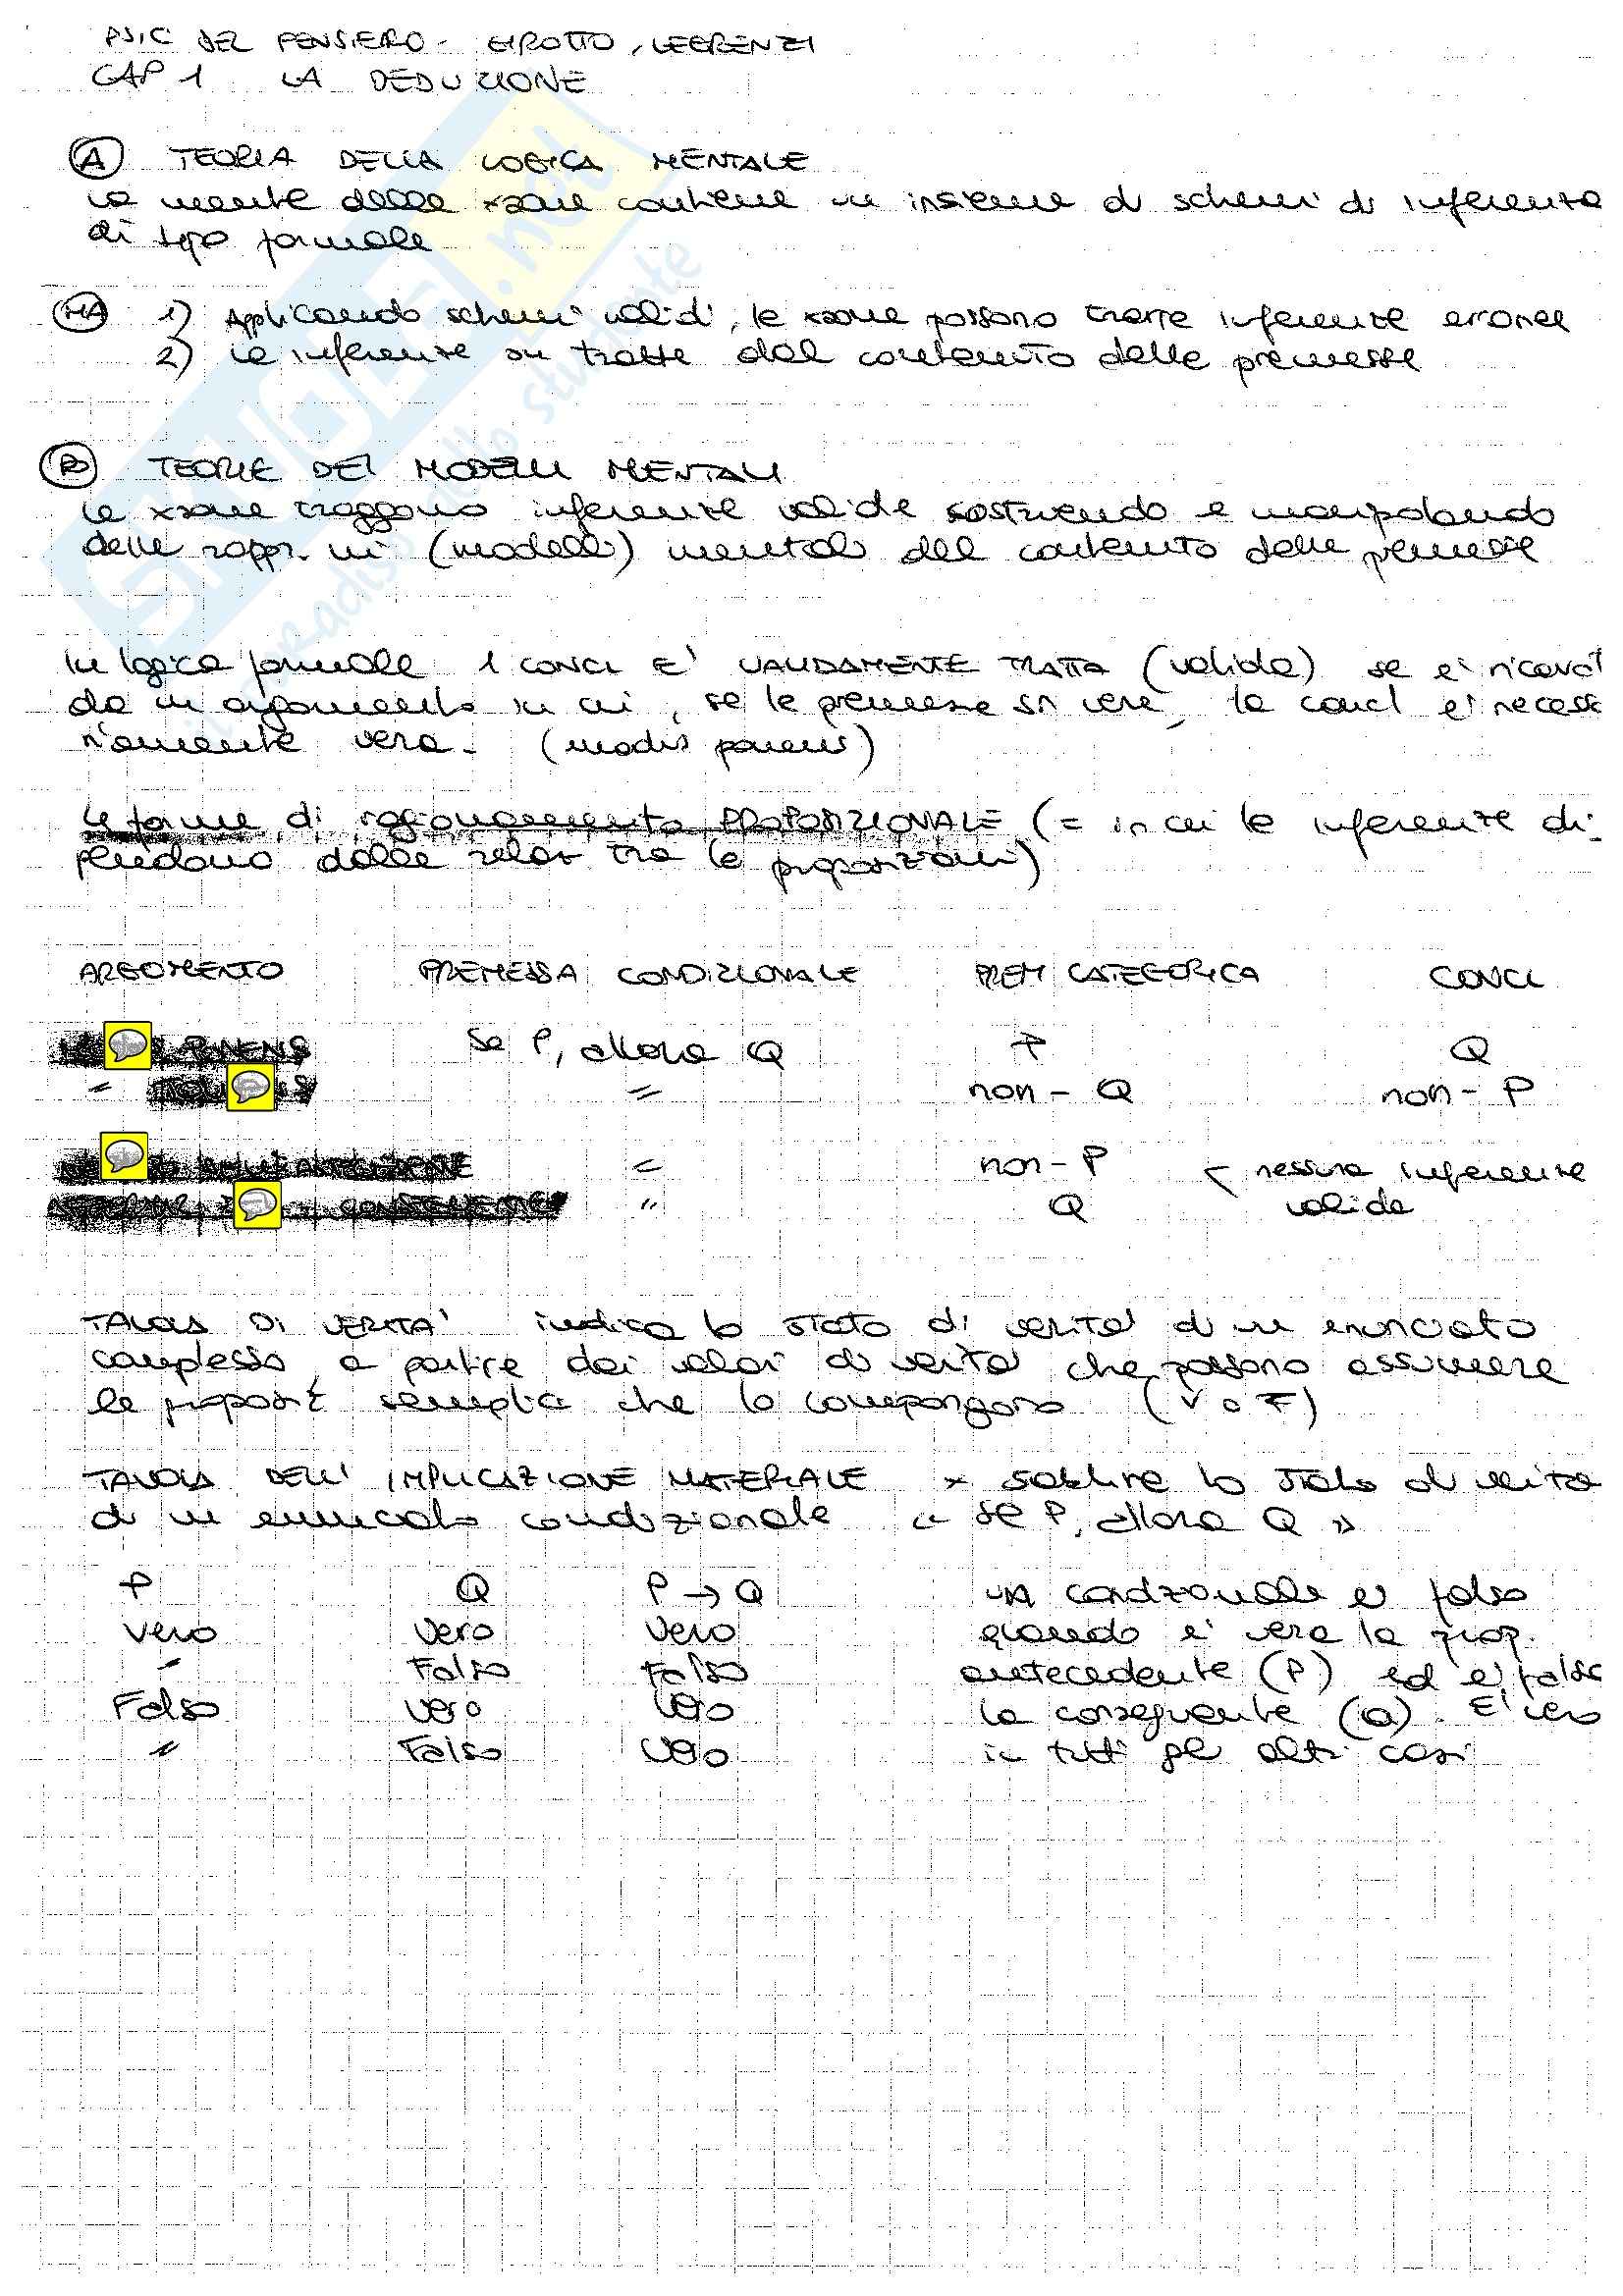 PSIC DEL PENSIERO - GIROTTO, LEGRENZI
CAP 1 LA DEDUZIONE
(A) TEORIA DELLA LOGICA MENTALE
la mente delle xsone contiene un insieme di schemi di inferenza
di tipo formale
(MA) 1) Applicando schemi validi, le xsone possono trarre inferenze erronee
2) le inferenze sn tratte dal contenuto delle premesse
(B) TEORIE DEI MODELLI MENTALI
le xsone traggono inferenze valide costruendo e manipolando
delle rappr.ni (modelli) mentali del contenuto delle premesse
In logica formale 1 CONCL E' VALIDAMENTE TRATTA (valida) se e' ricavat
da un argomento in cui, se le premesse sn vere, la concl e' necess
riamente vera. (modus ponens)
Le forme di ragionamento PROPOSIZIONALE (= in cui le inferenze di-
pendono dalle relaz tra le proposizioni)
ARGOMENTO PREMESSA CONDIZIONALE PREM CATEGORICA CONCL
PONENS Se P, allora Q P Q
" " non - Q non - P
DELL'ANTECEDENTE " non - P < nessuna inferenza
CONSEGUENTE " Q valida
TAVOLA DI VERITA' indica lo stato di verita' di un enunciato
complesso, a partire dai valori di verita' che possono assumere
le proposiz semplici che lo compongono (V o F)
TAVOLA DELL' IMPLICAZIONE MATERIALE x stabilire lo stato di verita
di un enunciato condizionale « se P, allora Q »
P Q P → Q un condizionale e' falso
vero Vero Vero quando e' vera la prop.
" Falso Falso antecedente (P) ed e' falsa
Falso Vero Vero la conseguente (Q). E' vero
" Falso Vero in tutti gli altri casi